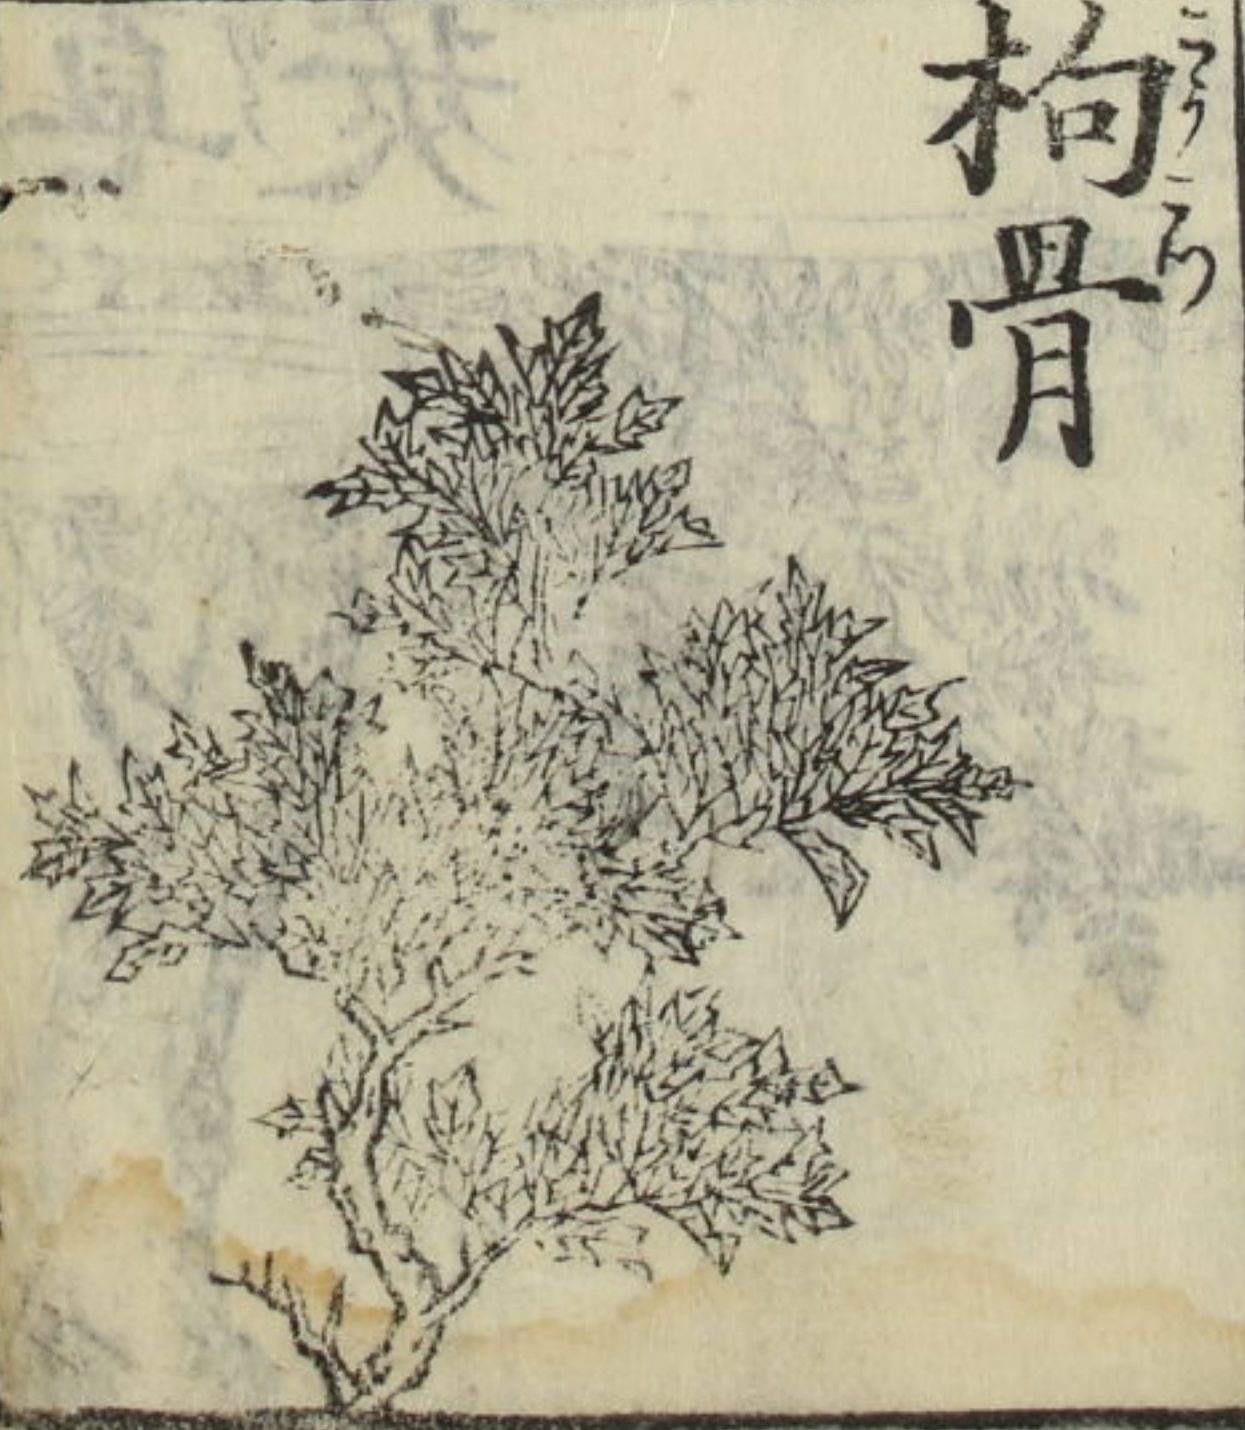 枸骨
こうこつ